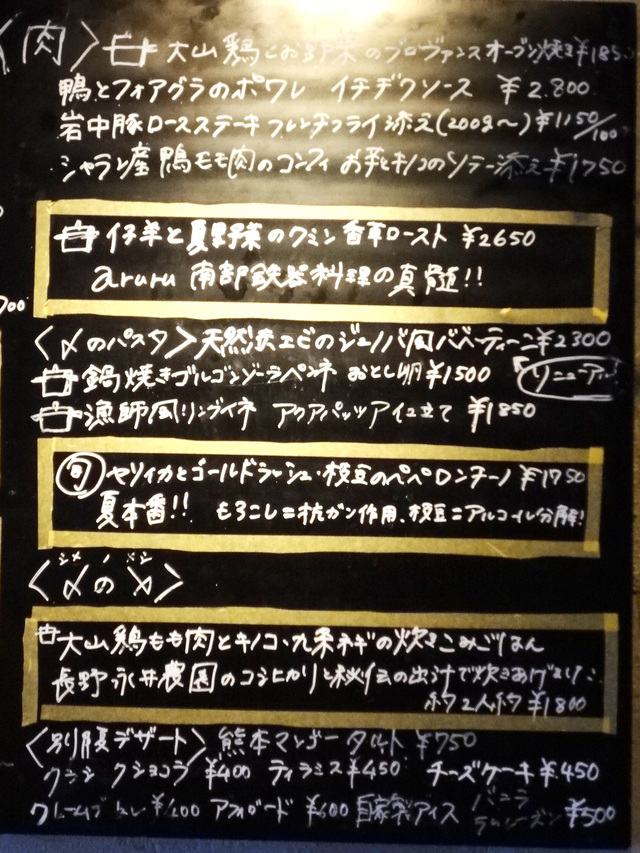 〈肉〉 大山鶏とお野菜のプロヴァンスオーブン焼き ¥185
鴨とフォアグラのポワレ イチヂクソース ¥2.800
岩中豚ロースステーキ フレンチフライ添え(200g〜) ¥1150/100
シャラン産鴨モモ肉のコンフィ お芋とキノコのソテー添え ¥1750
仔羊と夏野菜のクミン香草ロースト ¥2650
aruru 南部鉄器料理の真髄!!
700
〈〆のパスタ〉天然エビのジェノバ風バベッティーニ ¥2300
鍋焼きゴルゴンゾーラペンネ おとし卵 ¥1500 リニューアル
漁師風リングイネ アクアパッツァ仕立て ¥1850
旬 ヤリイカとゴールドラッシュ・枝豆のペペロンチーノ ¥1750
夏本番!! もろこし=抗ガン作用、枝豆=アルコール分解!
シメ ノ メシ
〈〆の〆〉
大山鶏もも肉とキノコ、九条ネギの炊きこみごはん
長野永井農園のコシヒカリと秘伝の出汁で炊きあげました
約2人前 ¥1800
〈別腹デザート〉熊本マンゴータルト ¥750
クラシックショコラ ¥400 ティラミス ¥450 チーズケーキ ¥450
クレームブリュレ アフォガード ¥600 自家製アイス バニラ ¥500